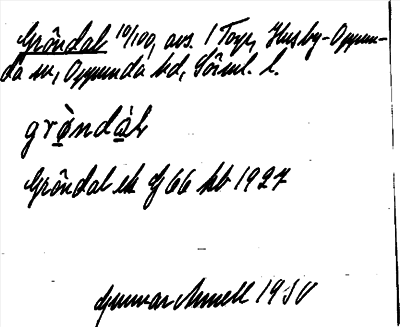 Gröndal 10/100, avs. 1 Torp, Husby-Oppun-
da sn, Oppunda hd, Sörml. l.
grò̤ndà̤l
Gröndal ek 66 kb 1927
Gunnar Amnell 1930